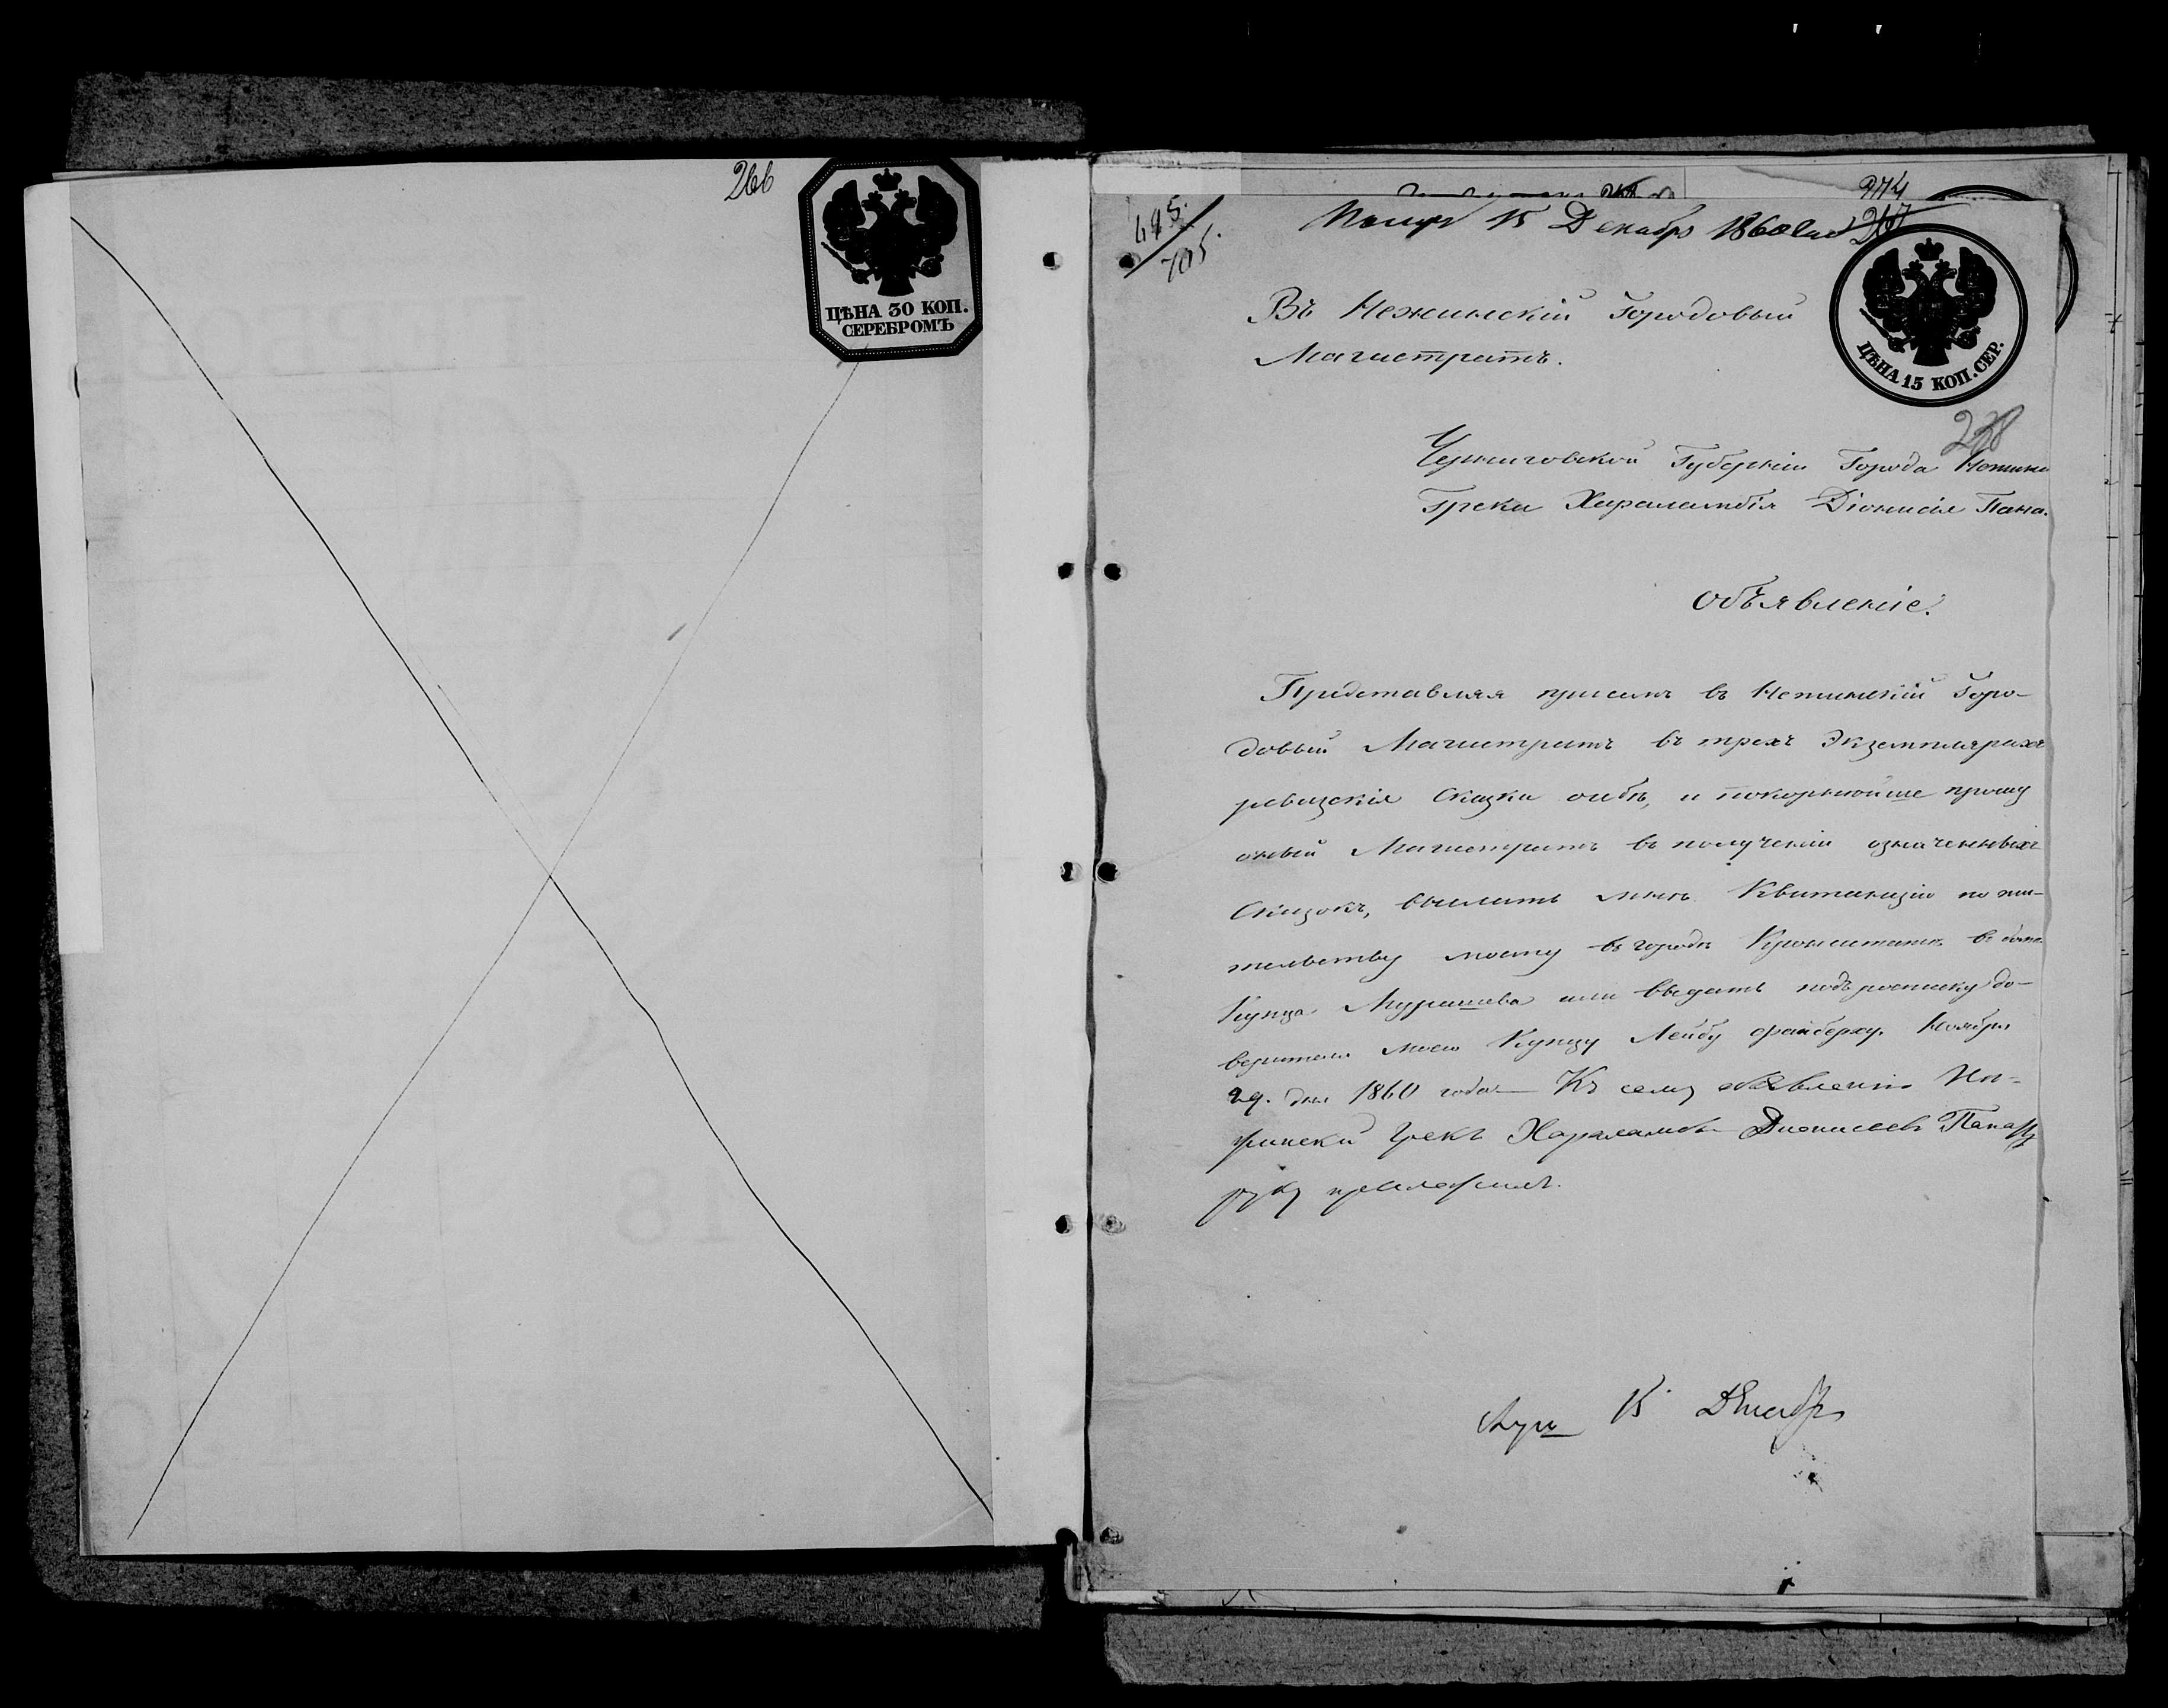 266
ЦѢНА 30 КОП.
СЕРЕБРОМЪ
495.
705.
274
267
Получ 15 Декабря 1860
Въ Нежинскій Городовый
Магистратъ.
ЦѢНА 15 КОП. СЕР.
238
Черниговской Губерніи Города Нежина
Грека Харалампія Діонисія Пана.
Объявленіе.
Представляя присемъ въ Нежинскій Горо-
довый Магистратъ въ трехъ Экземплярахъ
ревизскія Сказки о себѣ, и покорнѣйше прошу
оный Магистратъ въ полученіи означенныхъ
Сказокъ, выслать мнѣ Квитанцію по жи-
тельству моему въ городѣ Кронштатѣ въ домѣ
Купца Мурашева или выдать подъ росписку до-
верителю моему Купцу Лейбу Файберху. Ноября
29. дня 1860 года. Къ сему объявленію Не-
жинский Грекъ Харалампій Дионисіевъ Пана
руку приложилъ.
15 Декабря